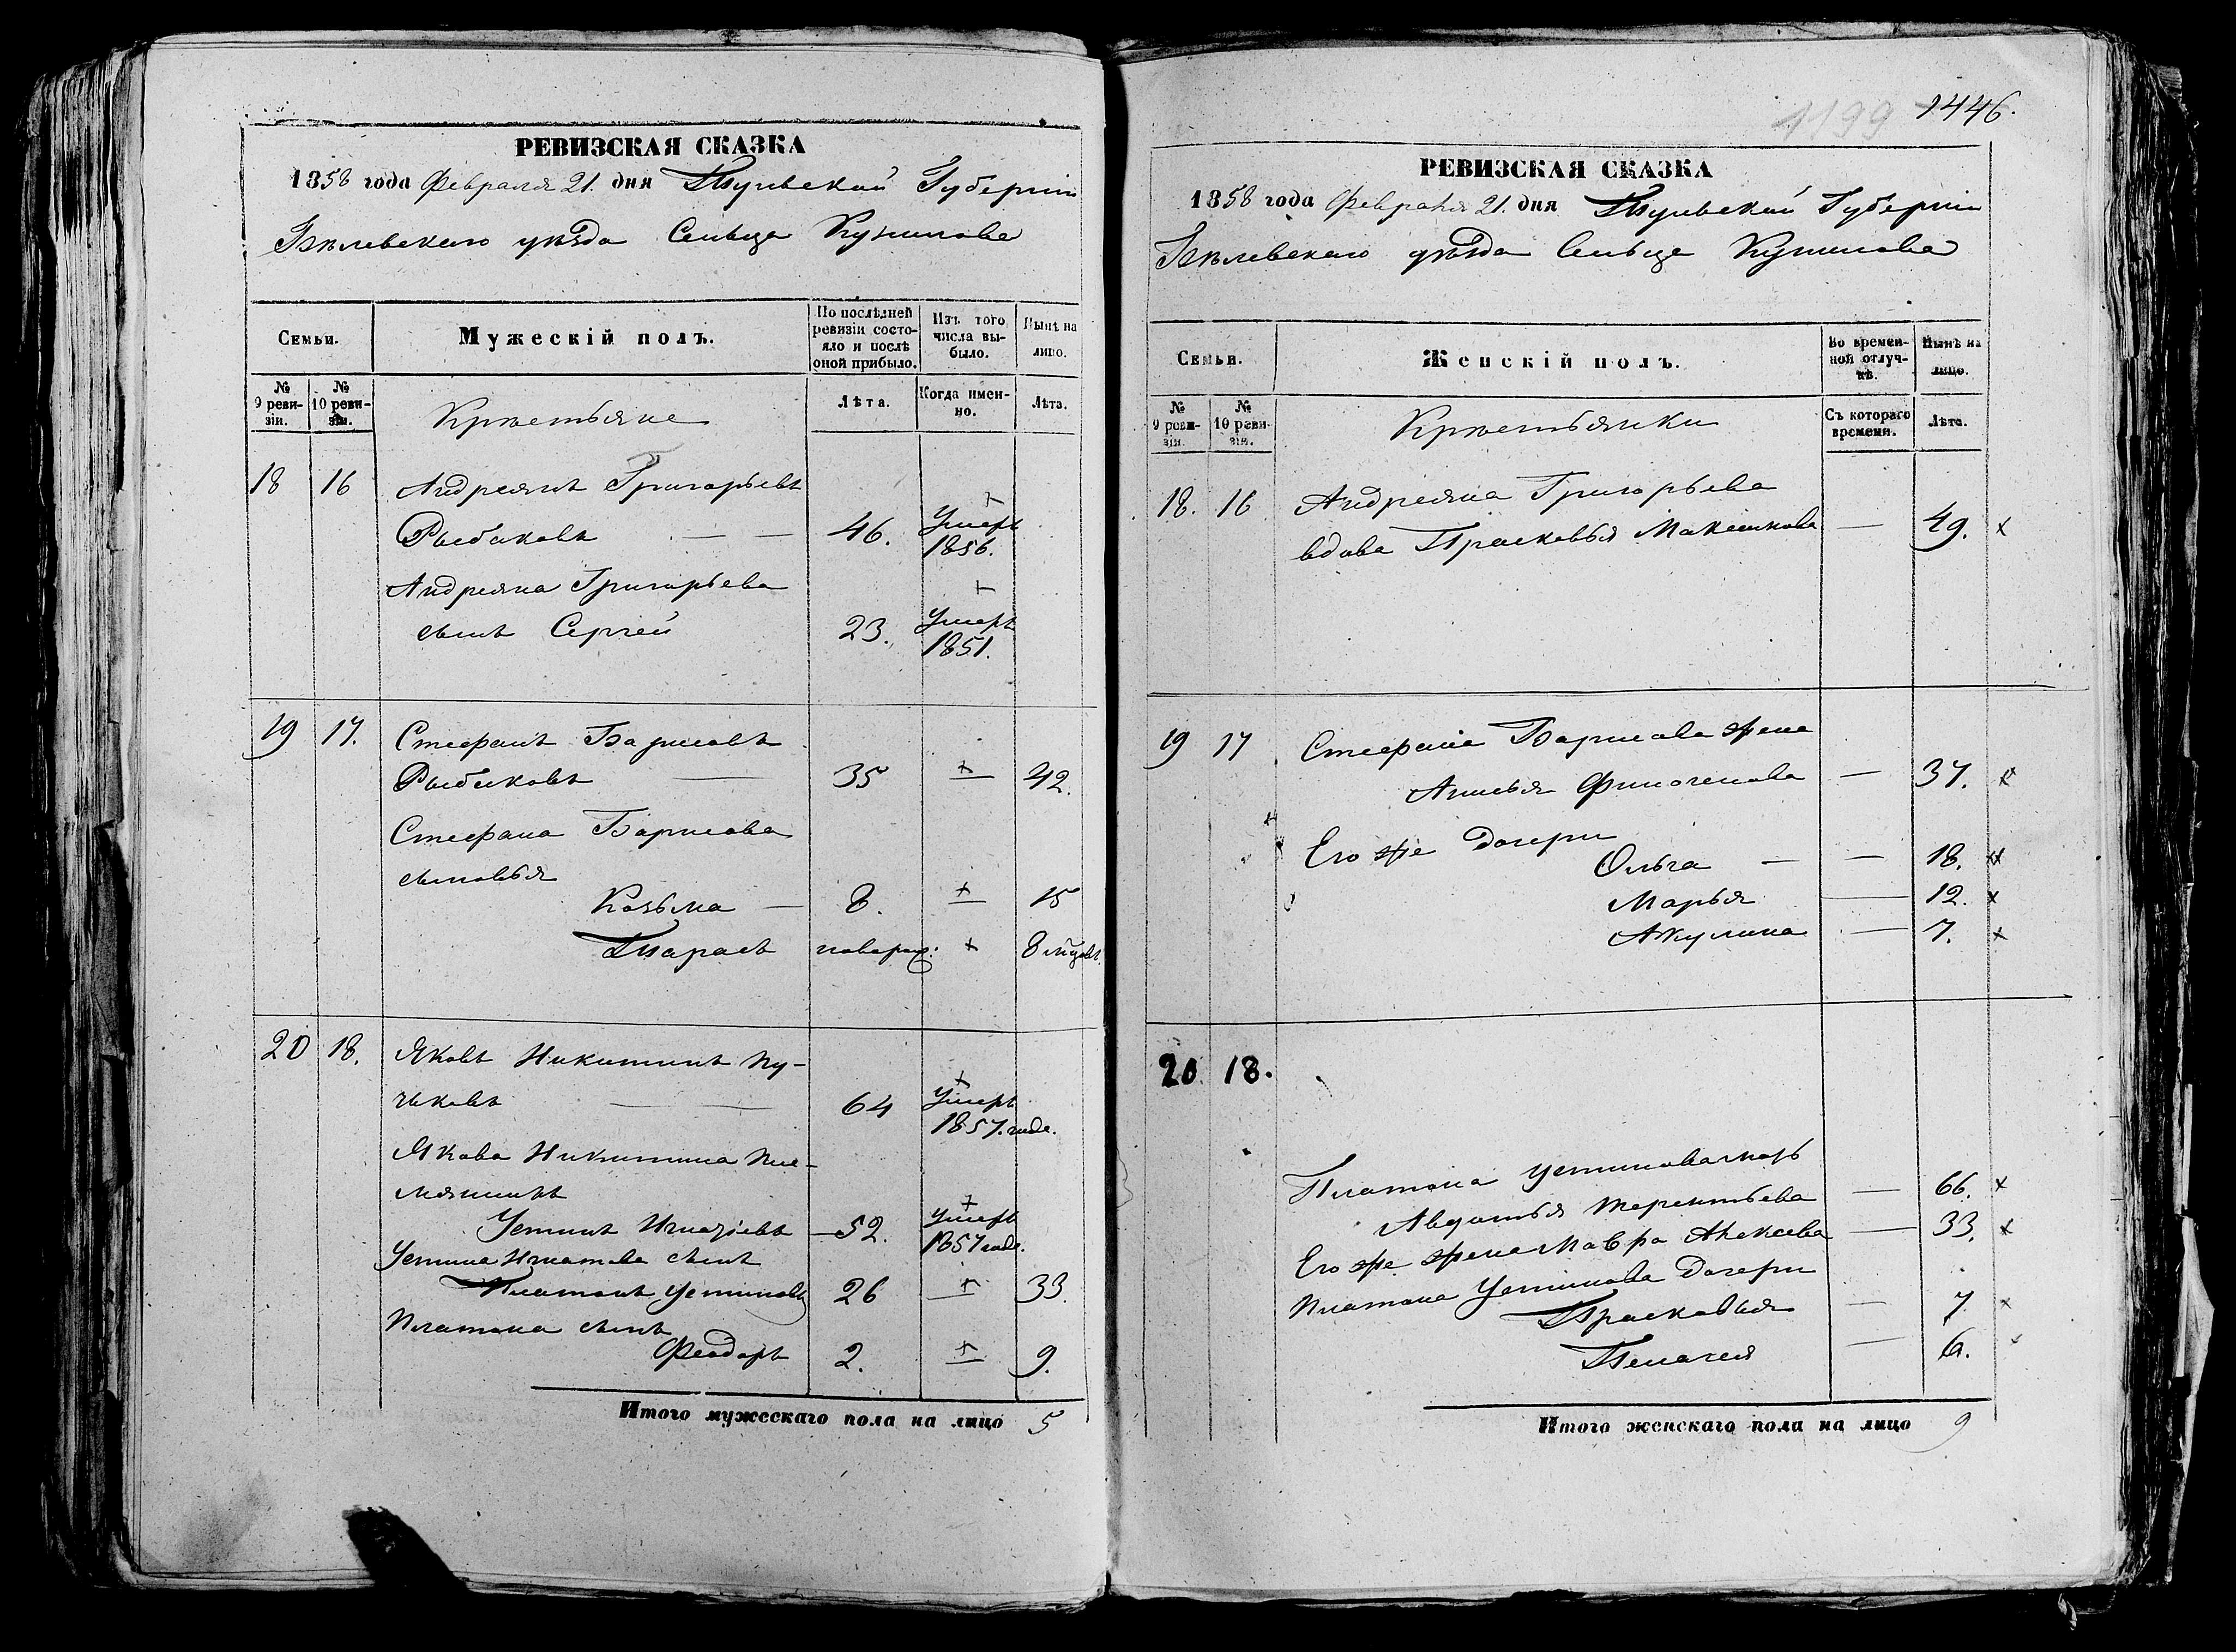 РЕВИЗСКАЯ СКАЗКА
1858 года Февраля 21. дня Тульской Губернiи
Бѣлевскаго уѣзда Сельца
Семьи.
Мужескiй полъ.
По послѣдней ревизiи состояло и послѣ оной прибыло.
Изъ того числа выбыло.
Нынѣ на лицо.
№ 9 ревизiи.
№ 10 ревизiи.
Крестьяне
Лѣта.
Когда именно.
Лѣта.
18 16 Андреянъ Григорьевъ
Рыбаковъ — — 46. Умеръ 1856.
Андреяна Григорьева
сынъ Сергей 23. Умеръ 1851.
19 17. Стефанъ Борисовъ
Рыбаковъ — 35 — 42.
Стефана Борисова
сыновья
Козьма — 8. — 15
Тарасъ новорож: 8 мѣсяцовъ.
20 18. Яковъ Никитинъ Пу-
чковъ — — 64 Умеръ 1857. года.
Якова Никитина пле-
мянникъ
Устинъ Игнатьевъ — 52. Умеръ 1857 года.
Устина Игнатова сынъ
Платонъ Устиновъ 26 — 33.
Платона сынъ
Феодоръ 2. — 9.
Итого мужескаго пола на лицо 5
1199 1446.
РЕВИЗСКАЯ СКАЗКА
1858 года Февраля 21. дня Тульской Губернiи
Бѣлевскаго уѣзда Сельца
Семьи.
Женскiй полъ.
Во временной отлучкѣ.
Нынѣ на лицо.
№ 9 ревизiи.
№ 10 ревизiи.
Крестьянки
Съ котораго времени.
Лѣта.
18. 16 Андреяна Григорьева
вдова Прасковья Максимова — 49. x
19 17 Стефана Борисова жена
Финогенова — 37. x
Его же дочери
Ольга — — 18. x
Марья — 12. x
Акулина — 7. x
20 18.
Платона Устинова мать
Авдотья Терентьева — 66. x
Его же жена Мавра Алексеева — 33. x
Платона Устинова дочери
Прасковья — 7 x
Пелагея — 6.
Итого женскаго пола на лицо 9